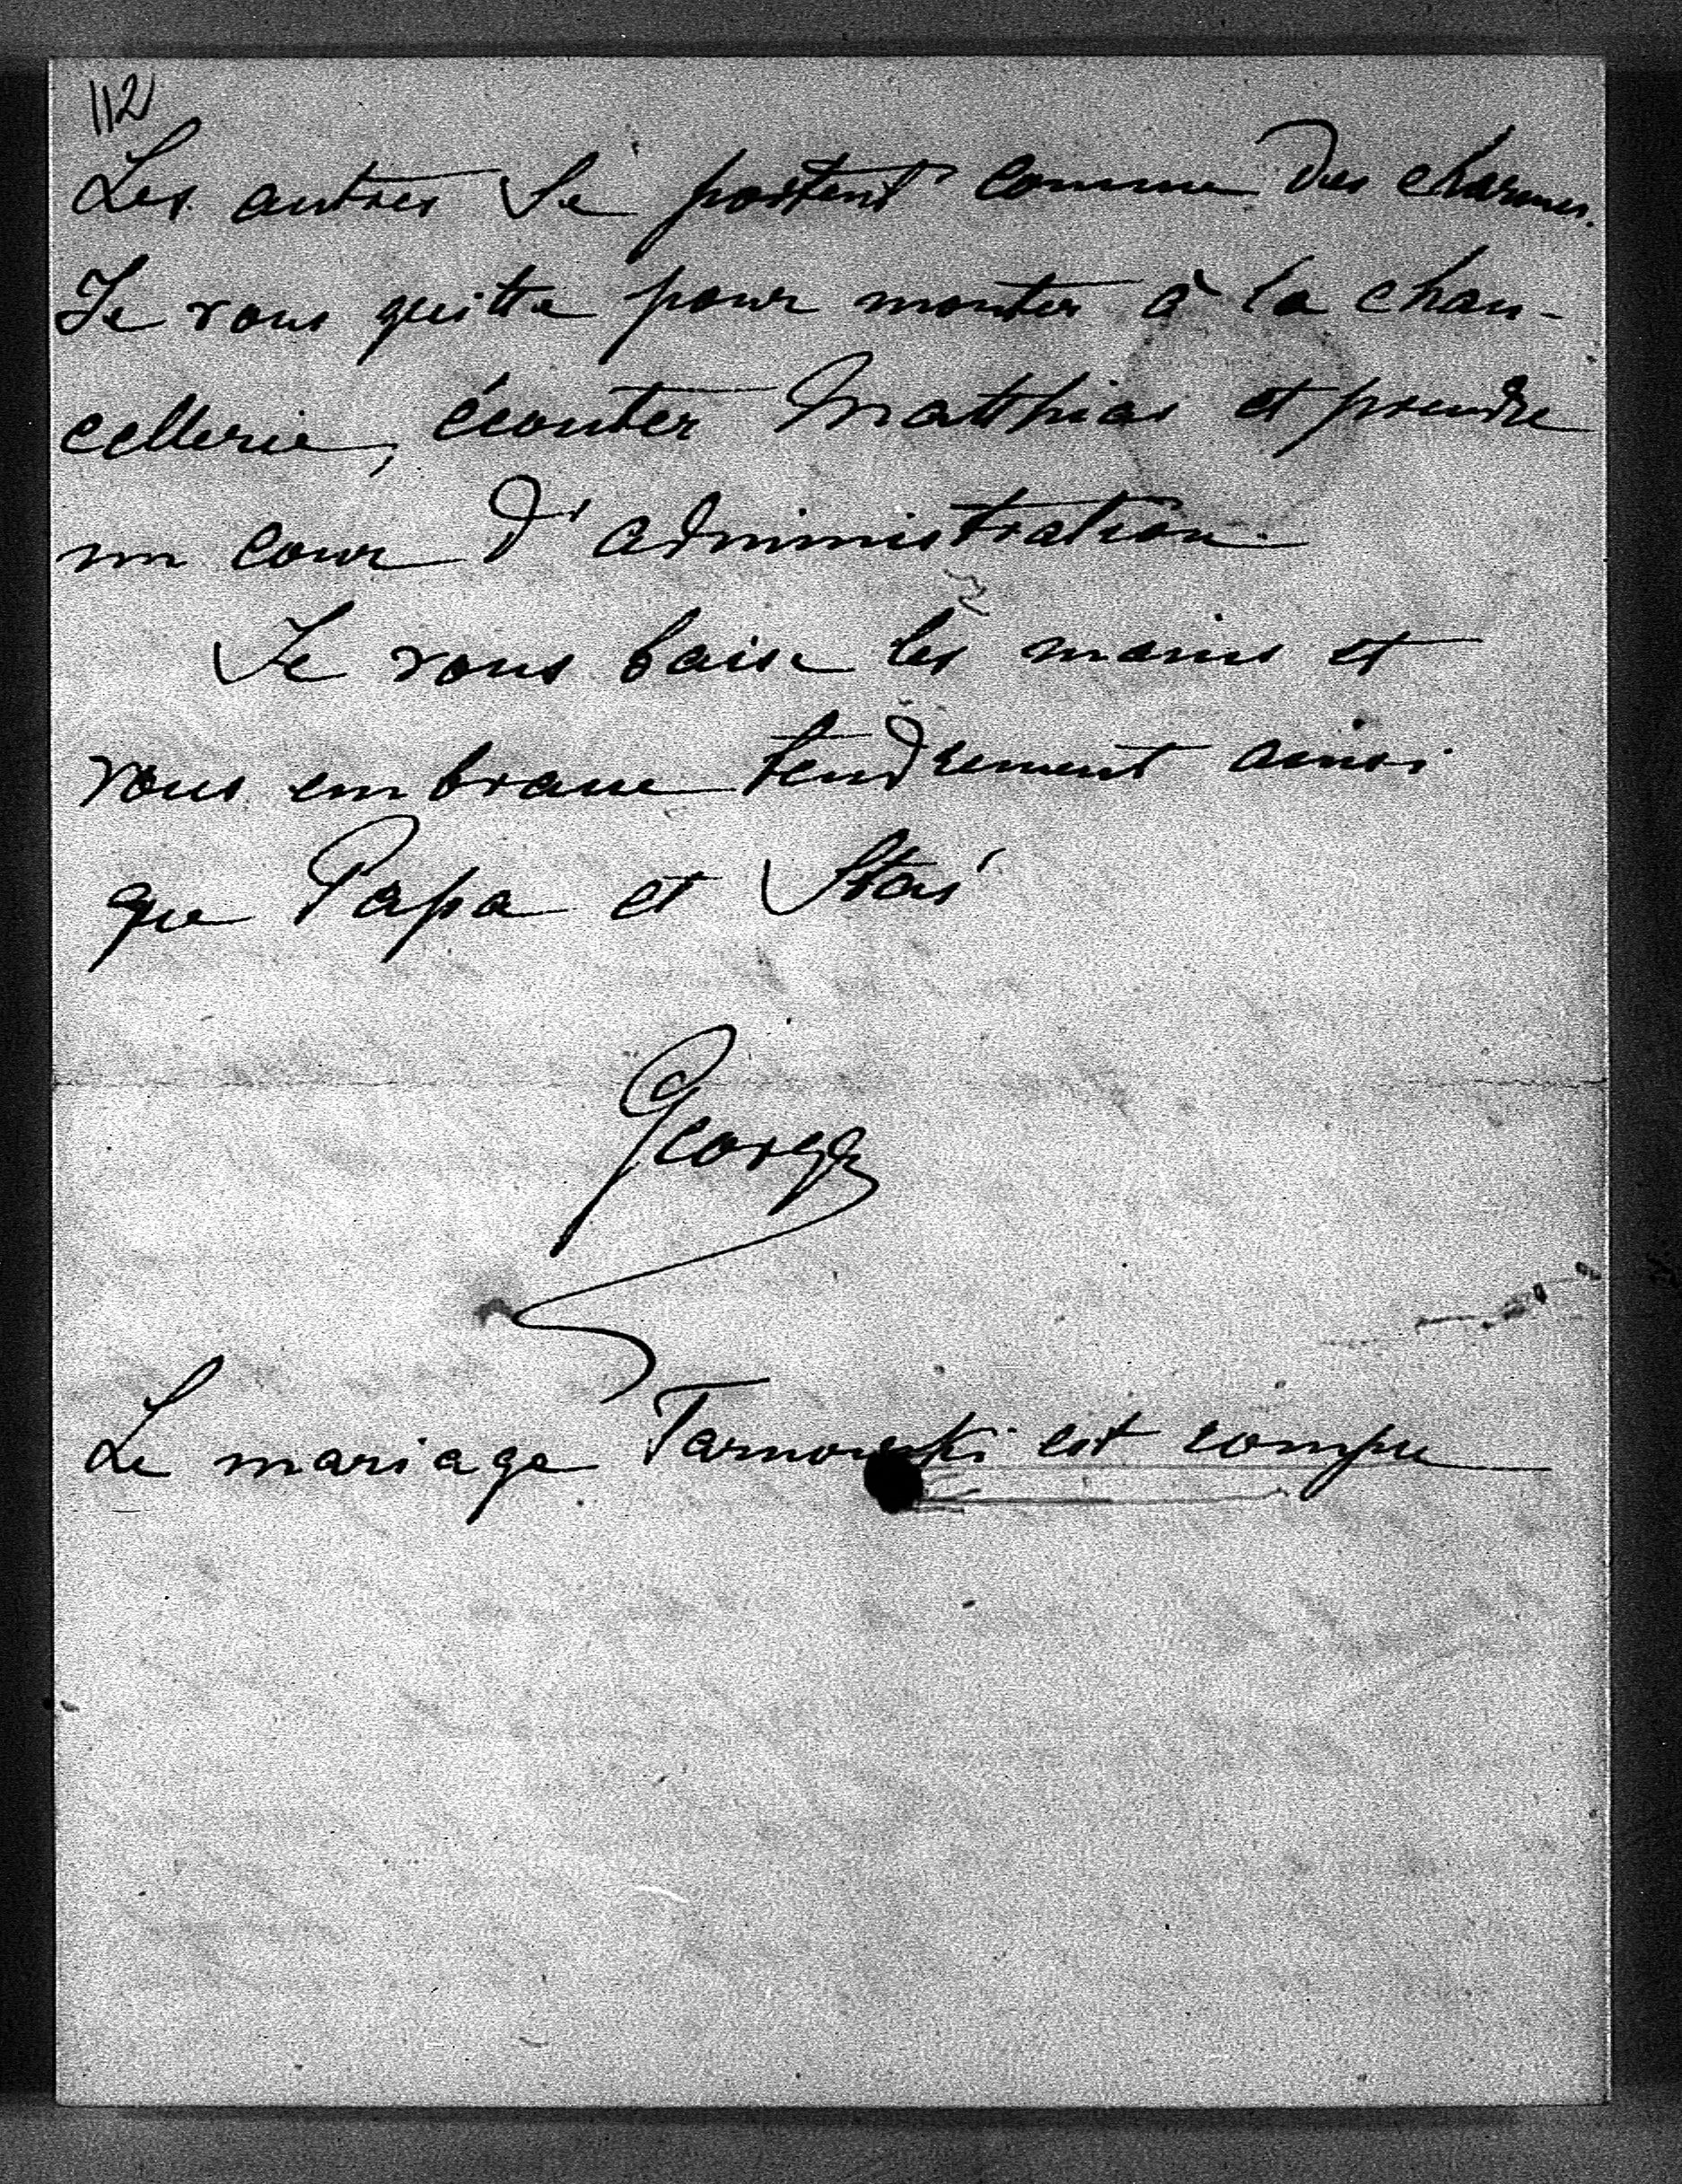 112
Les autres se portent comme des charmes.
Je vous quitte pour monter à la chan-
cellerie, écouter Matthias et prendre
un cour d'administration.
Je vous baise les mains et
vous embrasse tendrement ainsi
que Papa et Stas
Georges
Le mariage Tarnowski est rompu